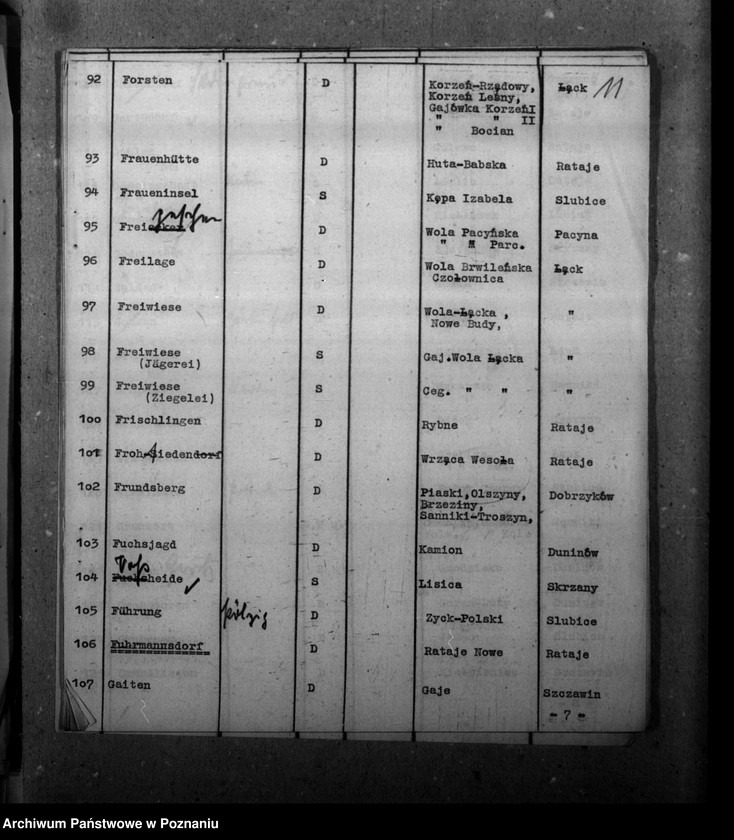 92 Forsten D Korzeń-Rządowy, Łąck 11
Korzeń Leśny,
Gajówka Korzeń I
" " II
" Bocian
93 Frauenhütte D Huta-Babska Rataje
94 Fraueninsel S Kępa Izabela Slubice
95 Frei D Wola Pacyńska Pacyna
" " Parc.
96 Freilage D Wola Brwileńska Łąck
Czołownica
97 Freiwiese D Wola-Łącka , "
Nowe Budy,
98 Freiwiese S Gaj.Wola Łącka "
(Jägerei)
99 Freiwiese S Ceg. " " "
(Ziegelei)
100 Frischlingen D Rybne Rataje
101 Frohsiedendorf D Wrząca Wesoła Rataje
102 Frundsberg D Piaski,Olszyny, Dobrzyków
Brzeziny,
Sanniki-Troszyn,
103 Fuchsjagd D Kamion Duninów
Voß
104 Fuchsheide S Lisica Skrzany
105 Führung D Zyck-Polski Slubice
106 Fuhrmannsdorf D Rataje Nowe Rataje
107 Gaiten D Gaje Szczawin
- 7 -
Archiwum Państwowe w Poznaniu